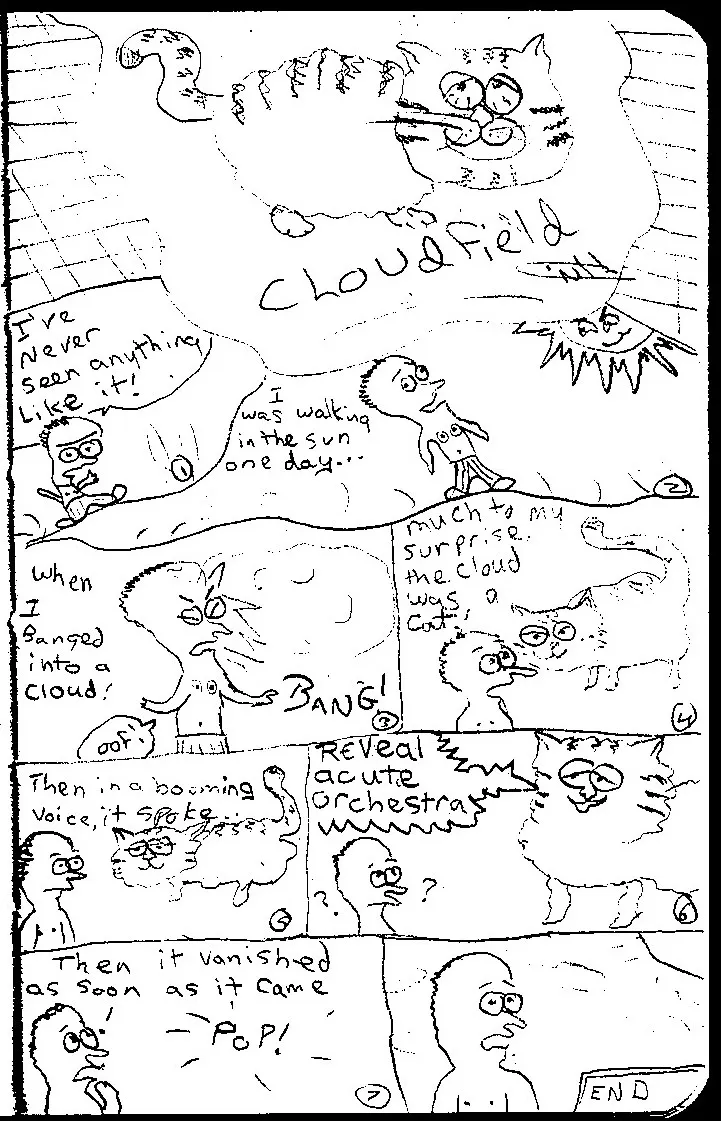 CLOUdField
I've
Never
seen anything
Like it!
1
I
was walking
in the sun
one day...
2
when
I
Banged
into a
cloud!
oof!
BANG!
3
much to my
surprise.
the cloud
was, a
Cat!
4
Then in a booming
voice, it spoke...
5
REVeal
acute
orchestra
?
?
6
Then it vanished
as soon as it came
!
POP!
7
END